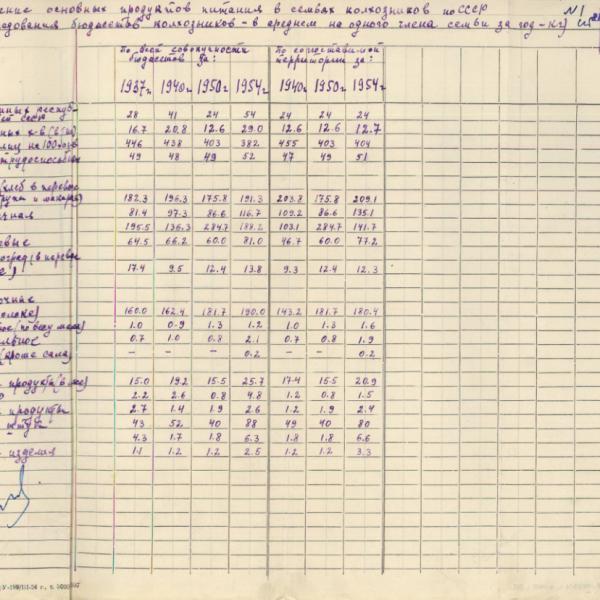 ние основных продуктов питания в семьях колхозников по СССР N1
ледования бюджетов колхозников - в среднем на одного члена семьи за год - кг)
По всей совокупности бюджетов за: По сопоставимой территории за:
1937г. 1940г. 1950г. 1954г. 1940г. 1950г. 1954г.
28 41 24 54 24 24 24
16.7 20.8 12.6 29.0 12.6 12.6 12.7
лиц на 100 хоз-в 446 438 403 382 455 403 404
трудоспособных 49 48 49 52 47 49 51
(хлеб в перевод
крупа и макароны) 182.3 196.3 175.8 191.3 203.8 175.8 209.1
чная 81.4 97.3 86.6 116.7 109.2 86.6 135.1
195.5 136.3 284.7 188.2 103.1 284.7 141.7
вые 64.5 66.2 60.0 81.0 46.7 60.0 77.2
ноград (в переводе
17.4 9.5 12.4 13.8 9.3 12.4 12.3
очные
молоке) 160.0 162.4 181.7 190.0 143.2 181.7 180.4
(по всему маслу) 1.0 0.9 1.3 1.2 1.0 1.3 1.6
льное 0.7 1.0 0.8 2.1 0.7 0.8 1.9
(кроме сала) - - - 0.2 - - 0.2
продукты (в мясе) 15.0 19.2 15.5 25.7 17.4 15.5 20.9
2.2 2.6 0.8 4.8 1.2 0.8 1.5
продукты 2.7 1.4 1.9 2.6 1.2 1.9 2.4
штук 43 52 40 88 49 40 80
4.3 1.7 1.8 6.3 1.8 1.8 6.6
изделия 1.1 1.2 1.2 2.5 1.2 1.2 3.3